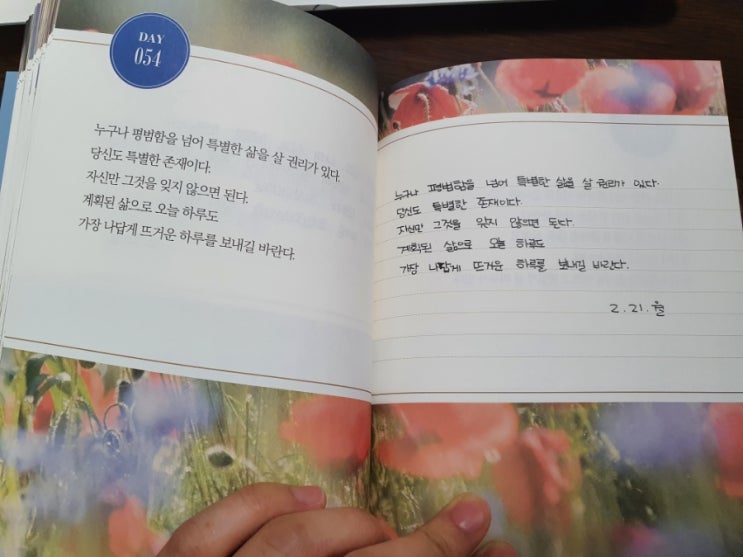 DAY
054
누구나 평범함을 넘어 특별한 삶을 살 권리가 있다.
당신도 특별한 존재이다.
자신만 그것을 잊지 않으면 된다.
계획된 삶으로 오늘 하루도
가장 나답게 뜨거운 하루를 보내길 바란다.
누구나 평범함을 넘어 특별한 삶을 살 권리가 있다.
당신도 특별한 존재이다.
자신만 그것을 잊지 않으면 된다.
계획된 삶으로 오늘 하루도
가장 나답게 뜨거운 하루를 보내길 바란다.
2.21.월